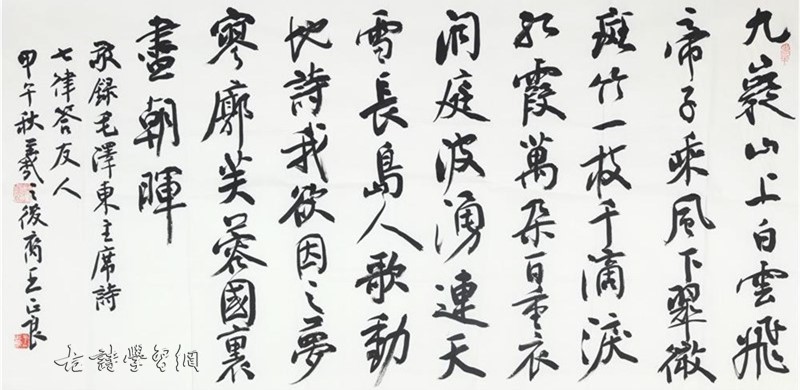 九嶷山上白雲飛
帝子乘風下翠微
斑竹一枝千滴淚
紅霞萬朵百重衣
洞庭波湧連天
雪長島人歌動
地詩我欲因之夢
寥廓芙蓉國裏
盡朝暉
錄毛澤東主席詩
七律答友人
甲午秋王羲之後裔王正良
古詩學習網